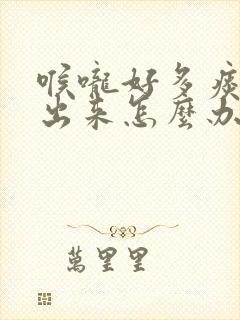 喉嚨好多痰
出來怎麼办
萬里里